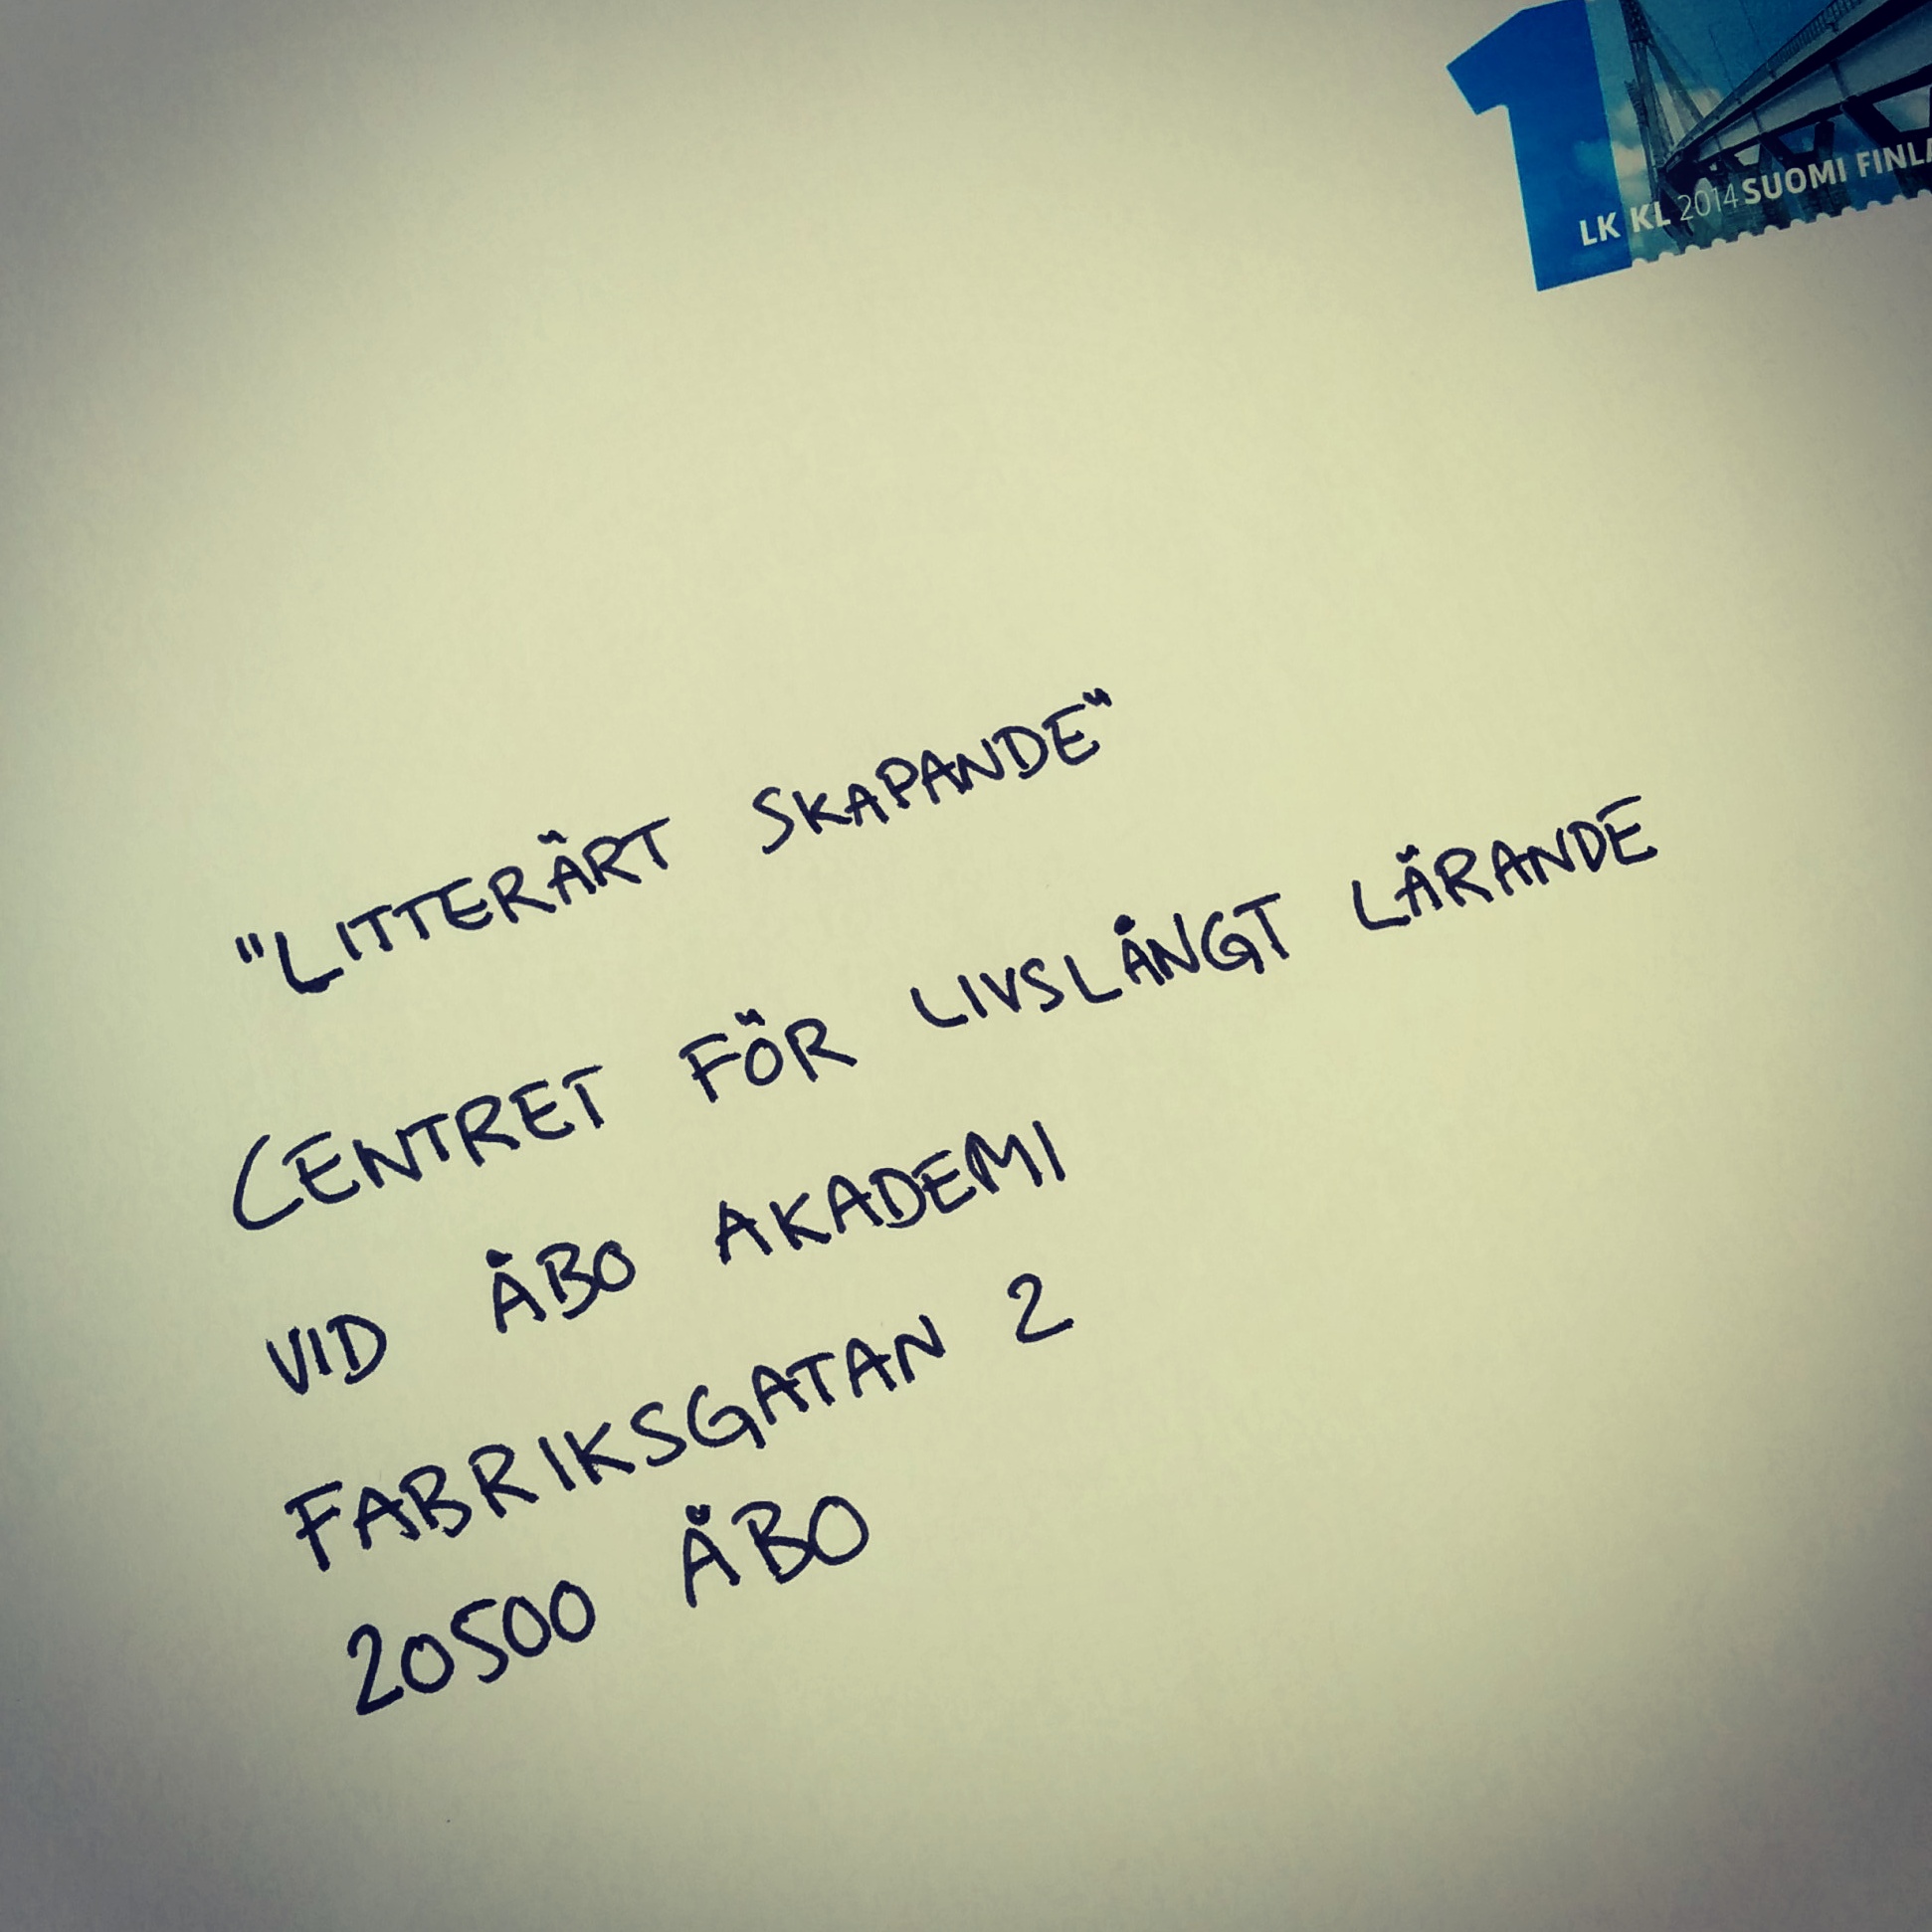 1
LK KL 2014 SUOMI FINLA
"LITTERÄRT SKAPANDE"
CENTRET FÖR LIVSLÅNGT LÄRANDE
VID ÅBO AKADEMI
FABRIKSGATAN 2
20500 ÅBO